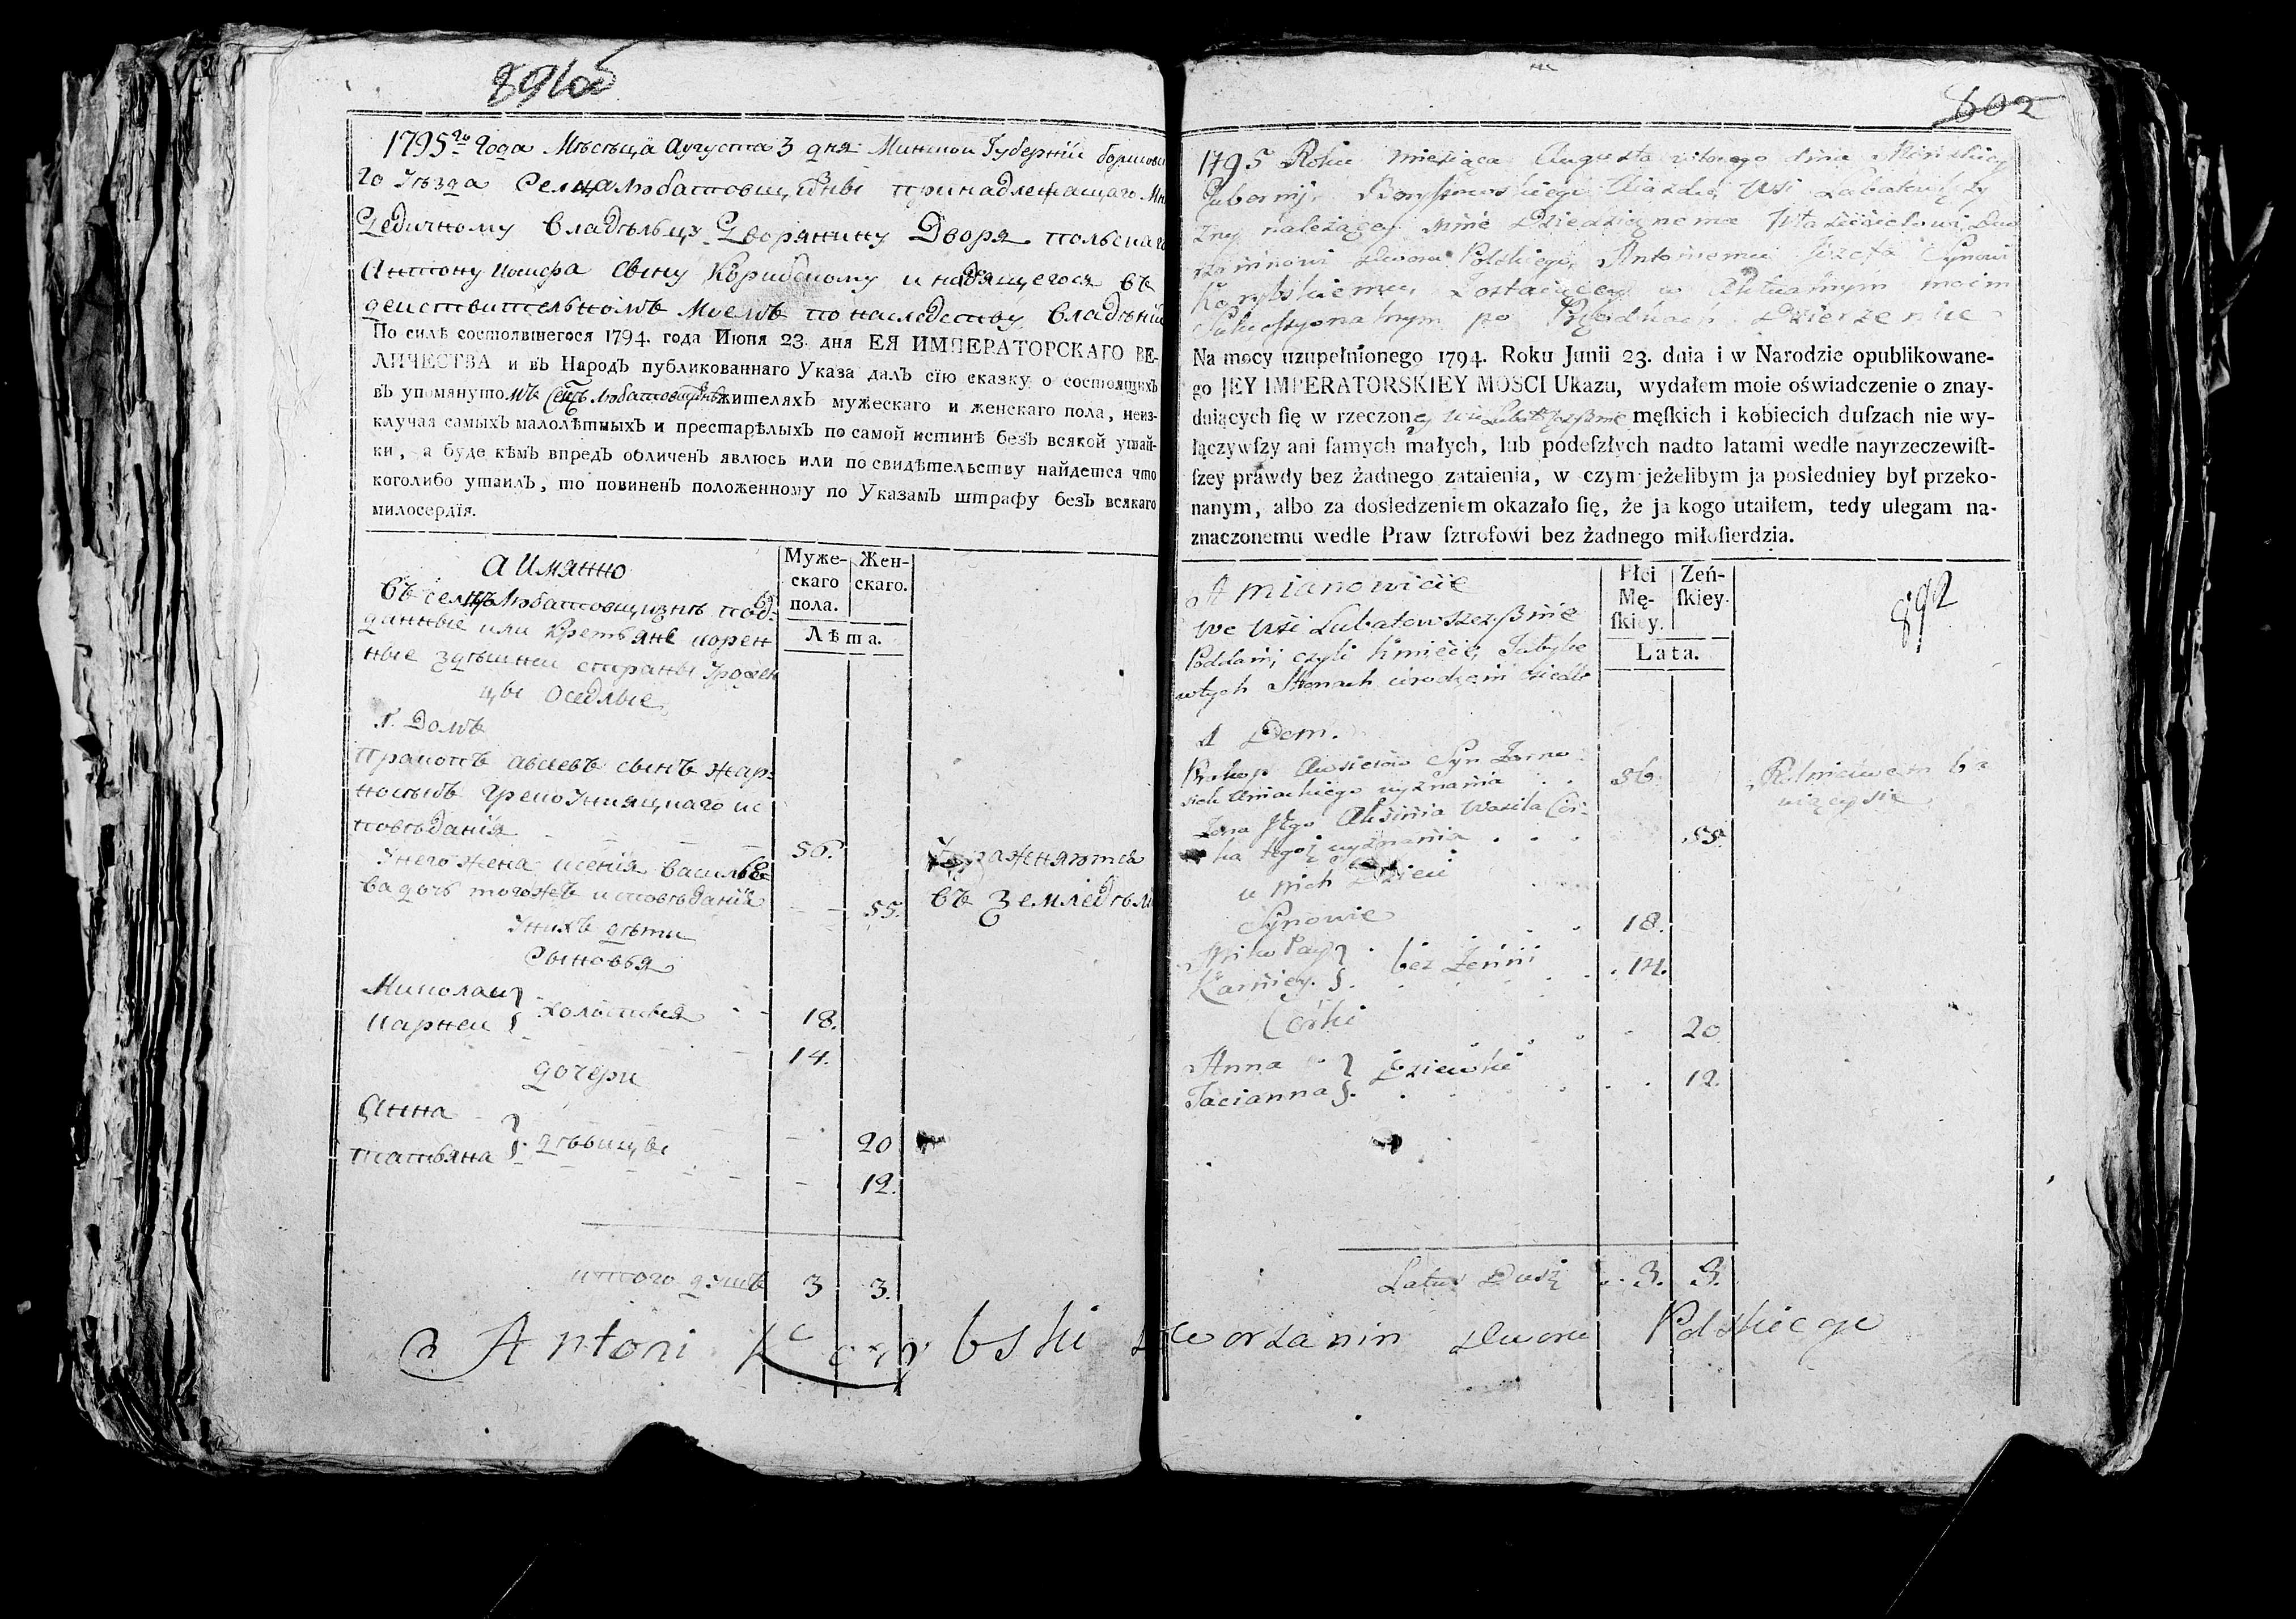 891об
1795го Года Мѣсяца Августа 3 дня Минской Губерніи Борисовс
го Уѣзда Селца Любатовщизны принадлежащаго Мн
Дедичному владѣльцу Дворянину Двора польскаго
Антону Иосифа сыну Корибскому и находящегося въ
действительномъ Моемъ по наследству владѣніи
По силѣ состоявшегося 1794. года Июня 23. дня ЕЯ ИМПЕРАТОРСКАГО ВЕ-
ЛИЧЕСТВА и въ Народъ публикованнаго Указа далъ сїю сказку о состоящихъ
въ упомянутомъ Селцѣ Любатовщизнѣ жителяхъ мужескаго и женскаго пола, неиз-
ключая самыхъ малолѣтныхъ и престарѣлыхъ по самой истинѣ безъ всякой утай-
ки, а буде кѣмъ впредъ обличенъ явлюсь или по свидѣтельству найдется что
коголибо утаилъ, то повиненъ положенному по Указамъ штрафу безъ всякаго
милосердїя.
А Имянно
Муже-
скаго
пола.
Жен-
скаго.
Лѣта.
въ селцѣ Любатовщизнѣ под-
данные или Крестьяне корен
ные здѣшней страны Урожен
цы оседлые
1. Домъ
Прокопъ Авсеевъ сынъ Жар-
носекъ Греко Униацкаго ис
повѣданія 56.
У него жена Ксенія Василье
ва дочь тогожъ исповѣданія 55.
Упражняются
въ Земледѣли
У нихъ дѣти
Сыновья
Миколай } холостыя 18.
Карней } 14.
дочери
Анна } дѣвицы 20
татьяна } 12.
итого душъ 3 3.
Antoni Korybski Dworzanin Dworu Polskiego
802
1795 Roku miesiąca Augusta wtorego dnia Minskiey
Gubernij Borysowskiego Uiazdu, Wsi Lubatowszczy
zny należącey mnie Dziedzicznemu Właścicielowi Dwo
rzaninowi Dworu Polskiego, Antoniemu Józefa Synowi
Korybskiemu, Zostaiącey w Aktualnym moim
Sukcessyonalnym po Przodkach Dzierzeniu
Na mocy uzupełnionego 1794. Roku Junii 23. dnia i w Narodzie opublikowane-
go JEY IMPERATORSKIEY MOSCI Ukazu, wydałem moie oświadczenie o znay-
duiących ſię w rzeczoney Wsi męſkich i kobiecich duſzach nie wy-
łączywſzy ani ſamych małych, lub podeſzłych nadto latami wedle nayrzeczewiſt-
ſzey prawdy bez żadnego zataienia, w czym jeżelibym ja posledniey był przeko-
nanym, albo za dosledzeniem okazało ſię, że ja kogo utaiłem, tedy ulegam na-
znaczonemu wedle Praw ſztrofowi bez żadnego miłoſierdzia.
A mianowicie
Płci
Mę-
ſkiey.
Zeń-
ſkiey.
Lata.
892
we Wsi Lubatowszczyznie
Poddani, czyli kmiecie,
w tych Stronach urodzeni osiedli
1 Dom.
Prokop Awsieiow Syn Zarno
siek Uniackiego wyznania 56.
Rolnictwem ba
wiący się
Zona Jego Aksinia Wasila Cór-
ka tegoż wyznania 55.
u nich Dzieci
Synowie
Mikołay } bez Zenni 18.
Karniey } 14.
Córki
Anna } Dziewki 20
Tacianna } 12.
Latus Dusz 3. 3.